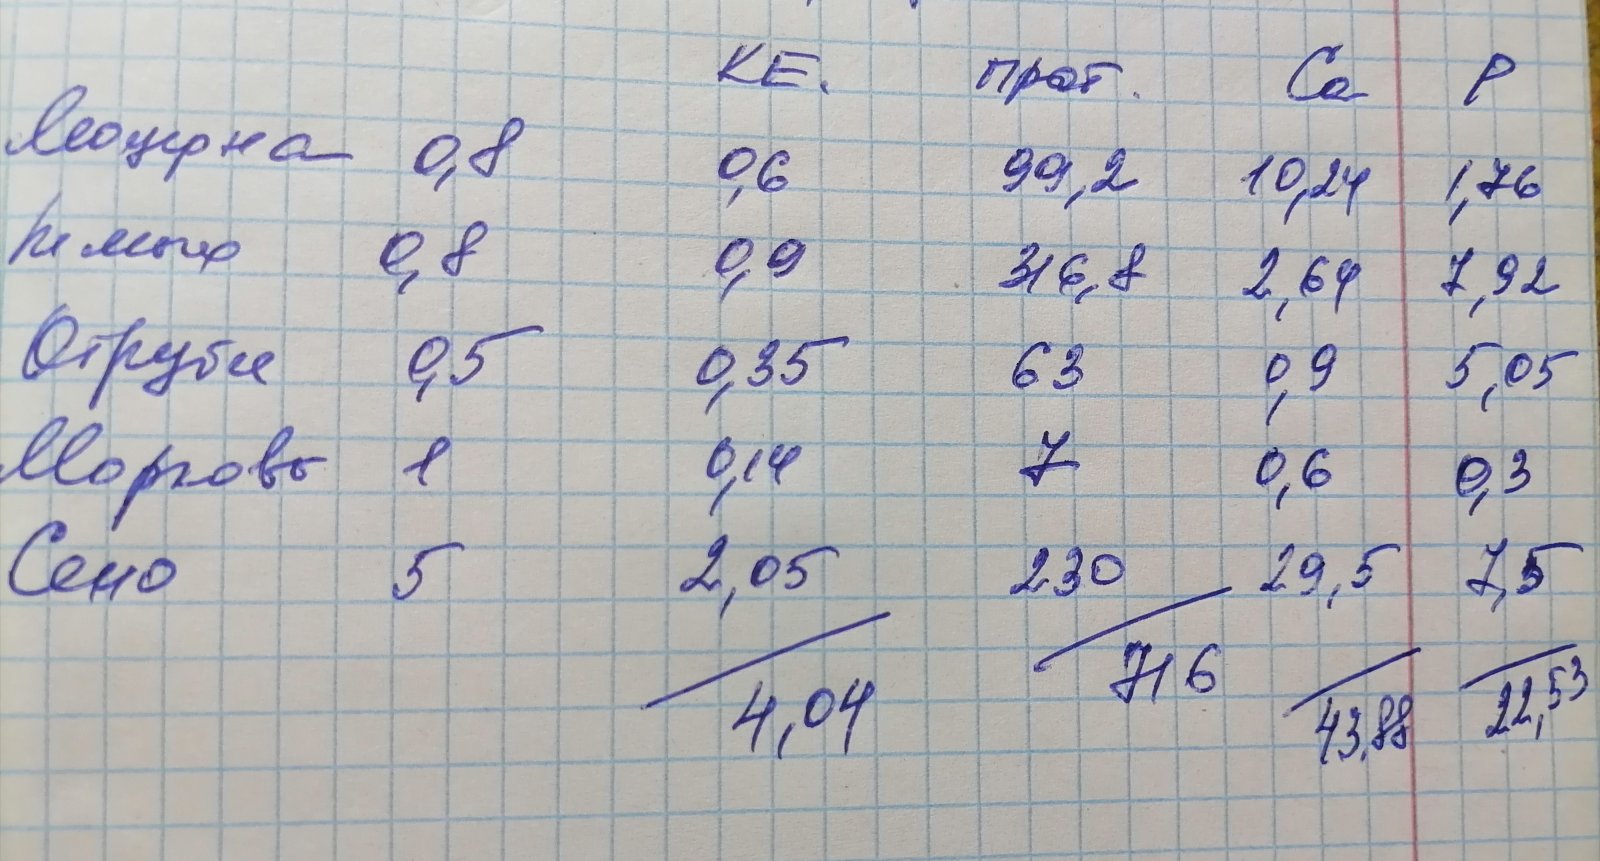 КЕ. прот. Ca P
Люцерна 0,8 0,6 99,2 10,24 1,76
Жмых 0,8 0,9 316,8 2,64 7,92
Отруби 0,5 0,35 63 0,9 5,05
Морковь 1 0,14 7 0,6 0,3
Сено 5 2,05 230 29,5 7,5
4,04 716 43,88 22,53